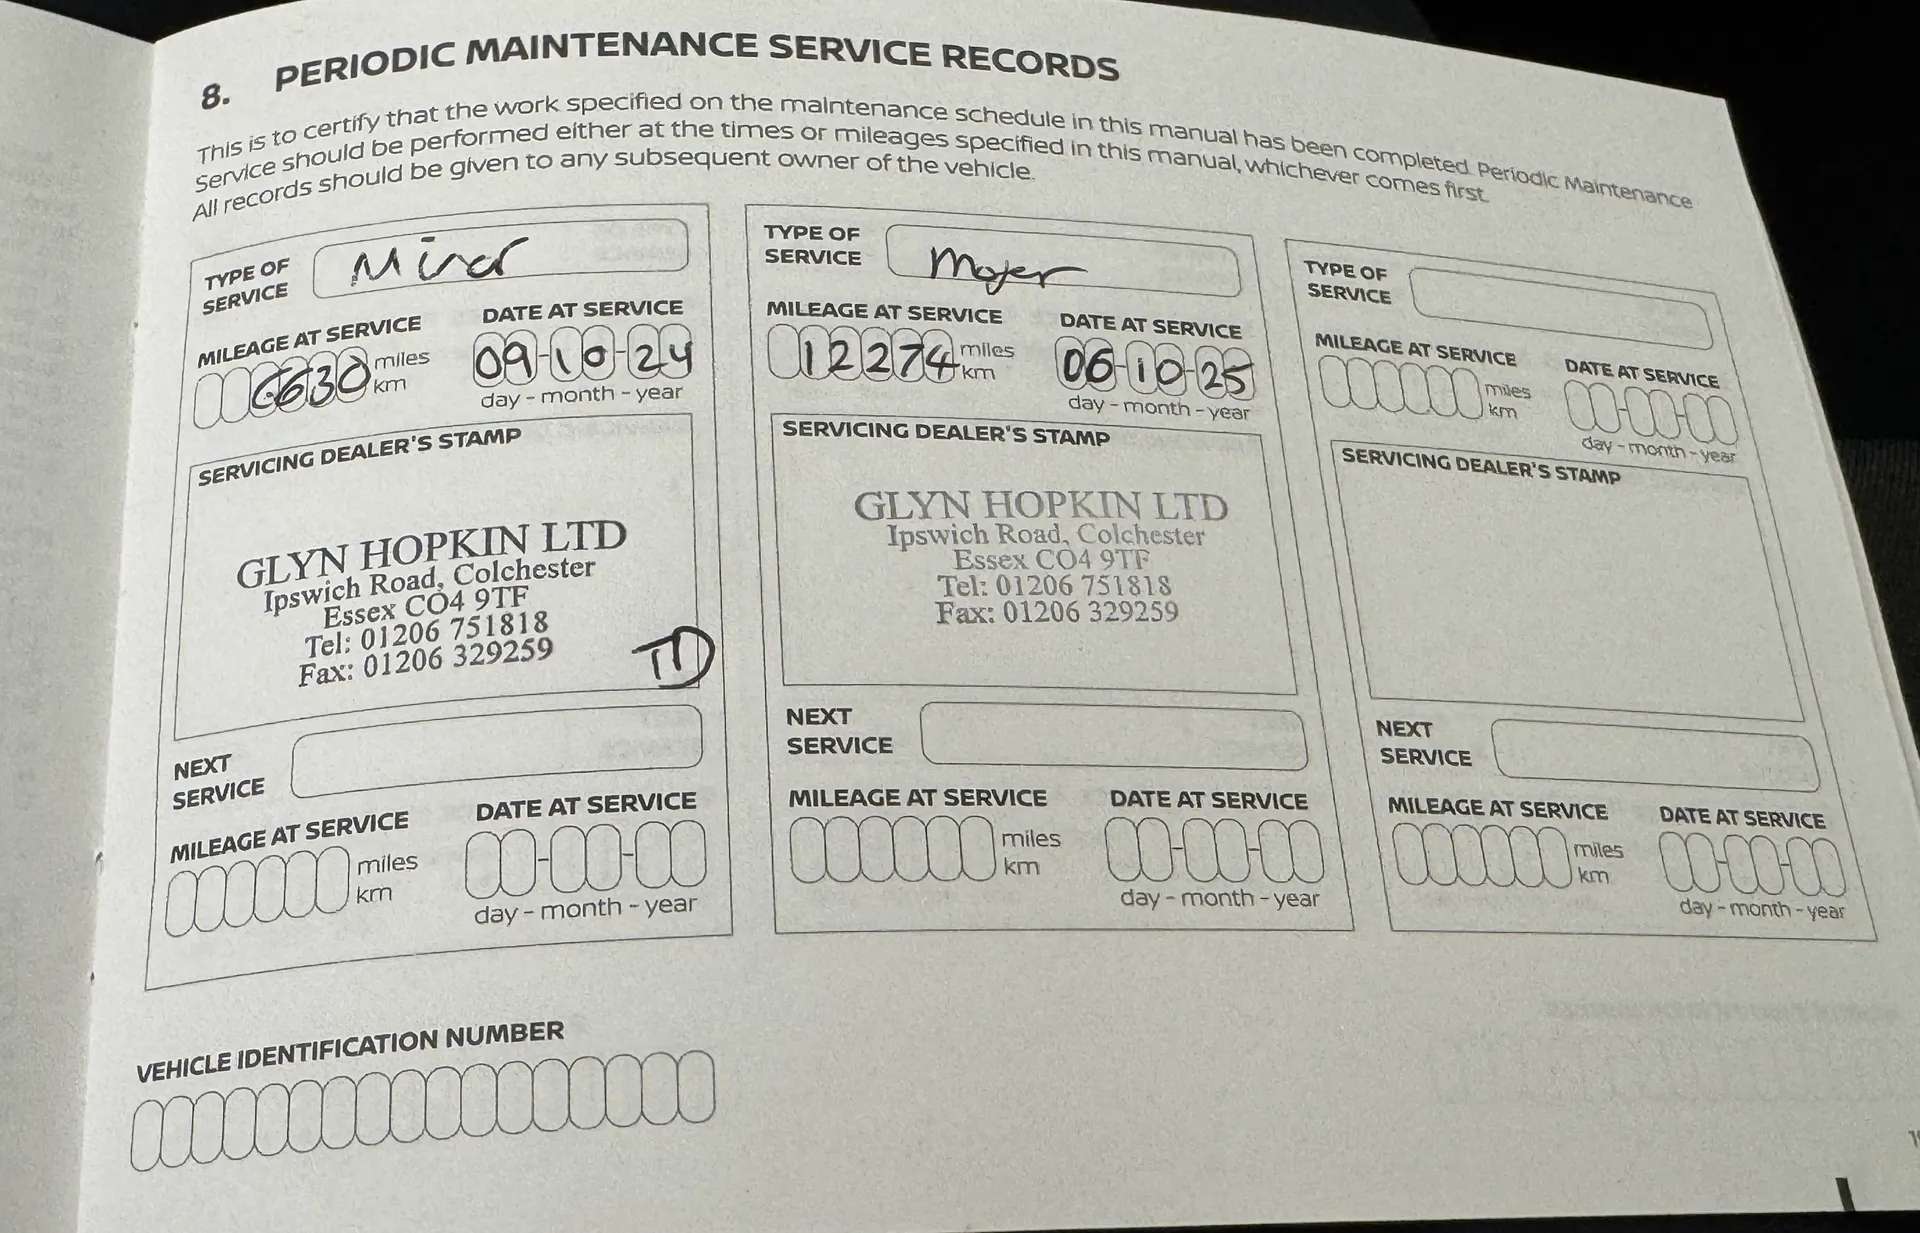 8. PERIODIC MAINTENANCE SERVICE RECORDS
This is to certify that the work specified on the maintenance schedule in this manual has been completed. Periodic Maintenance
Service should be performed either at the times or mileages specified in this manual, whichever comes first.
All records should be given to any subsequent owner of the vehicle.
TYPE OF
SERVICE
Minor
MILEAGE AT SERVICE
6630
miles
km
DATE AT SERVICE
09-10-24
day - month - year
SERVICING DEALER'S STAMP
GLYN HOPKIN LTD
Ipswich Road, Colchester
Essex CO4 9TF
Tel: 01206 751818
Fax: 01206 329259
NEXT
SERVICE
MILEAGE AT SERVICE
miles
km
DATE AT SERVICE
day - month - year
TYPE OF
SERVICE
Majer
MILEAGE AT SERVICE
12274
miles
km
DATE AT SERVICE
06-10-25
day - month - year
SERVICING DEALER'S STAMP
GLYN HOPKIN LTD
Ipswich Road, Colchester
Essex CO4 9TF
Tel: 01206 751818
Fax: 01206 329259
NEXT
SERVICE
MILEAGE AT SERVICE
miles
km
DATE AT SERVICE
day - month - year
TYPE OF
SERVICE
MILEAGE AT SERVICE
miles
km
DATE AT SERVICE
day - month - year
SERVICING DEALER'S STAMP
NEXT
SERVICE
MILEAGE AT SERVICE
miles
km
DATE AT SERVICE
day - month - year
VEHICLE IDENTIFICATION NUMBER